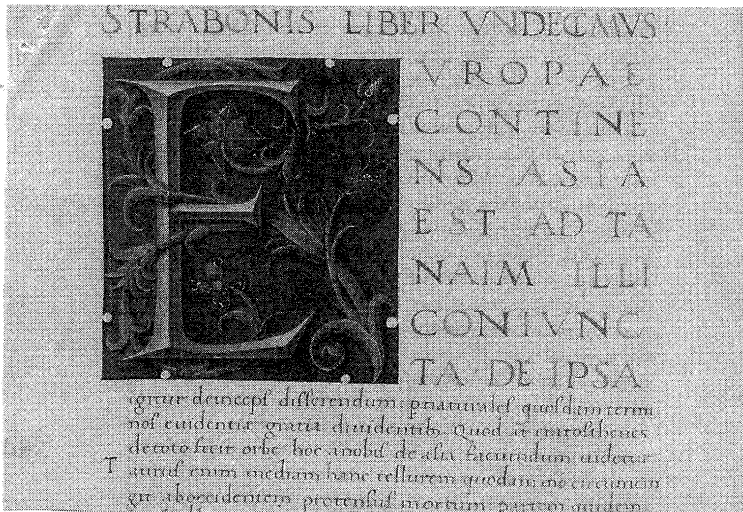 STRABONIS LIBER VNDECIMVS
E
VROPAE
CONTINE
NS · ASIA
EST AD TA
NAIM ILLI
CONIVNC
TA · DE IPSA
igitur deincepſ diſſerendum: quoſdam termi
noſ euidentię gratia diuidentib; Quod
de toto fecit orbe hoc a nobiſ de aſia faciundum uidetur
T
auruſ enim mediam hanc tellurem quodam mo circumcin
git ab occidentem protenſuſ quidem